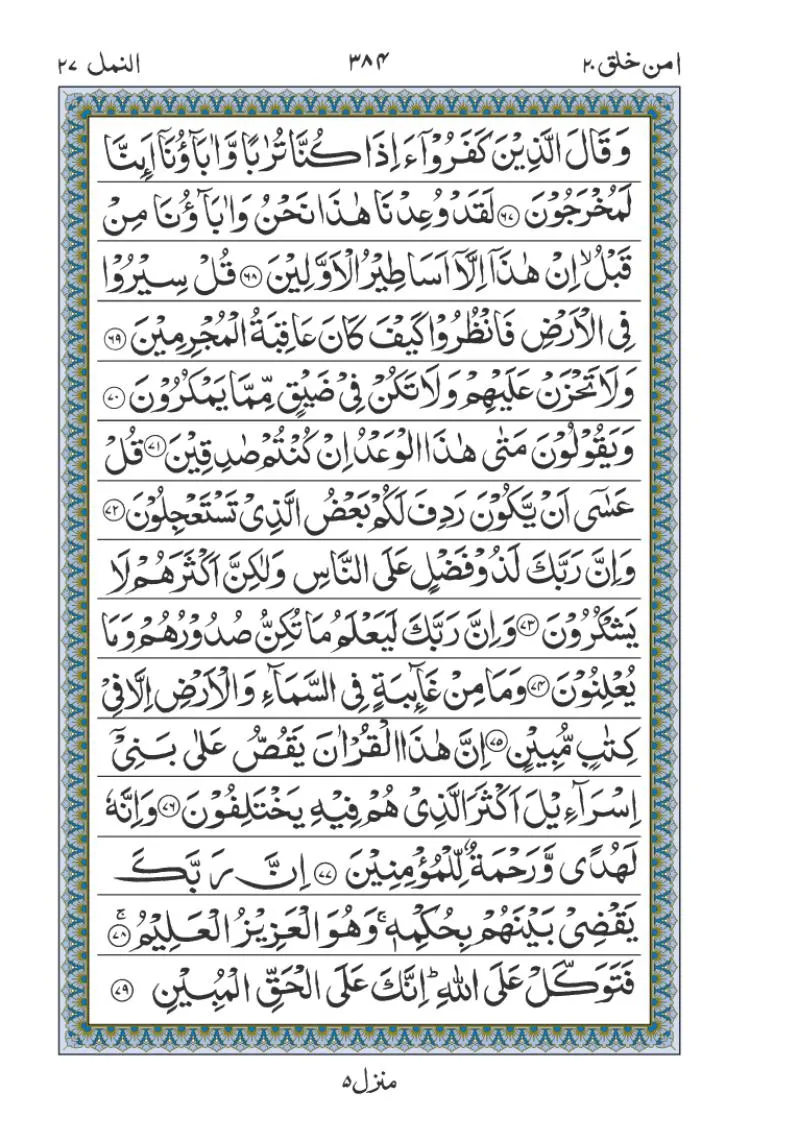 امن خلق ٢٠ ٣٨۴ النمل ٢٧
وَ قَالَ الَّذِيْنَ كَفَرُوْۤا ءَاِذَا كُنَّا تُرٰبًا وَّ اٰبَآؤُنَاۤ اَىِٕنَّا
لَمُخْرَجُوْنَ ﴿٦٧﴾ لَقَدْ وُعِدْنَا هٰذَا نَحْنُ وَ اٰبَآؤُنَا مِنْ
قَبْلُ ۙ اِنْ هٰذَاۤ اِلَّاۤ اَسَاطِيْرُ الْاَوَّلِيْنَ ﴿٦٨﴾ قُلْ سِيْرُوْا
فِى الْاَرْضِ فَانْظُرُوْا كَيْفَ كَانَ عَاقِبَةُ الْمُجْرِمِيْنَ ﴿٦٩﴾
وَ لَا تَحْزَنْ عَلَيْهِمْ وَ لَا تَكُنْ فِىْ ضَيْقٍ مِّمَّا يَمْكُرُوْنَ ﴿٧٠﴾
وَ يَقُوْلُوْنَ مَتٰى هٰذَا الْوَعْدُ اِنْ كُنْتُمْ صٰدِقِيْنَ ﴿٧١﴾ قُلْ
عَسٰۤى اَنْ يَّكُوْنَ رَدِفَ لَكُمْ بَعْضُ الَّذِىْ تَسْتَعْجِلُوْنَ ﴿٧٢﴾
وَ اِنَّ رَبَّكَ لَذُوْ فَضْلٍ عَلَى النَّاسِ وَ لٰكِنَّ اَكْثَرَهُمْ لَا
يَشْكُرُوْنَ ﴿٧٣﴾ وَ اِنَّ رَبَّكَ لَيَعْلَمُ مَا تُكِنُّ صُدُوْرُهُمْ وَ مَا
يُعْلِنُوْنَ ﴿٧۴﴾ وَ مَا مِنْ غَآىِٕبَةٍ فِى السَّمَآءِ وَ الْاَرْضِ اِلَّا فِىْ
كِتٰبٍ مُّبِيْنٍ ﴿٧٥﴾ اِنَّ هٰذَا الْقُرْاٰنَ يَقُصُّ عَلٰى بَنِىْۤ
اِسْرَآءِيْلَ اَكْثَرَ الَّذِىْ هُمْ فِيْهِ يَخْتَلِفُوْنَ ﴿٧٦﴾ وَ اِنَّهٗ
لَهُدًى وَّ رَحْمَةٌ لِّلْمُؤْمِنِيْنَ ﴿٧٧﴾ اِنَّ رَبَّكَ
يَقْضِىْ بَيْنَهُمْ بِحُكْمِهٖ ۚ وَ هُوَ الْعَزِيْزُ الْعَلِيْمُ ۚ ﴿٧٨﴾
فَتَوَكَّلْ عَلَى اللّٰهِ ؕ اِنَّكَ عَلَى الْحَقِّ الْمُبِيْنِ ﴿٧٩﴾
منزل ٥